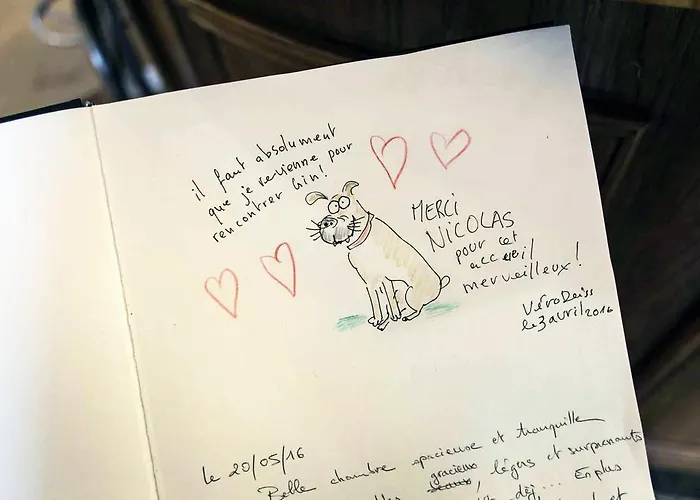 il faut absolument
que je revienne pour
rencontrer
MERCI
NICOLAS
pour cet
accueil
merveilleux!
VéroDeiss
le 3 avril 2016
le 20/05/16
Belle chambre spacieuse et tranquille
gracieux
légers et surprenants
En plus
et